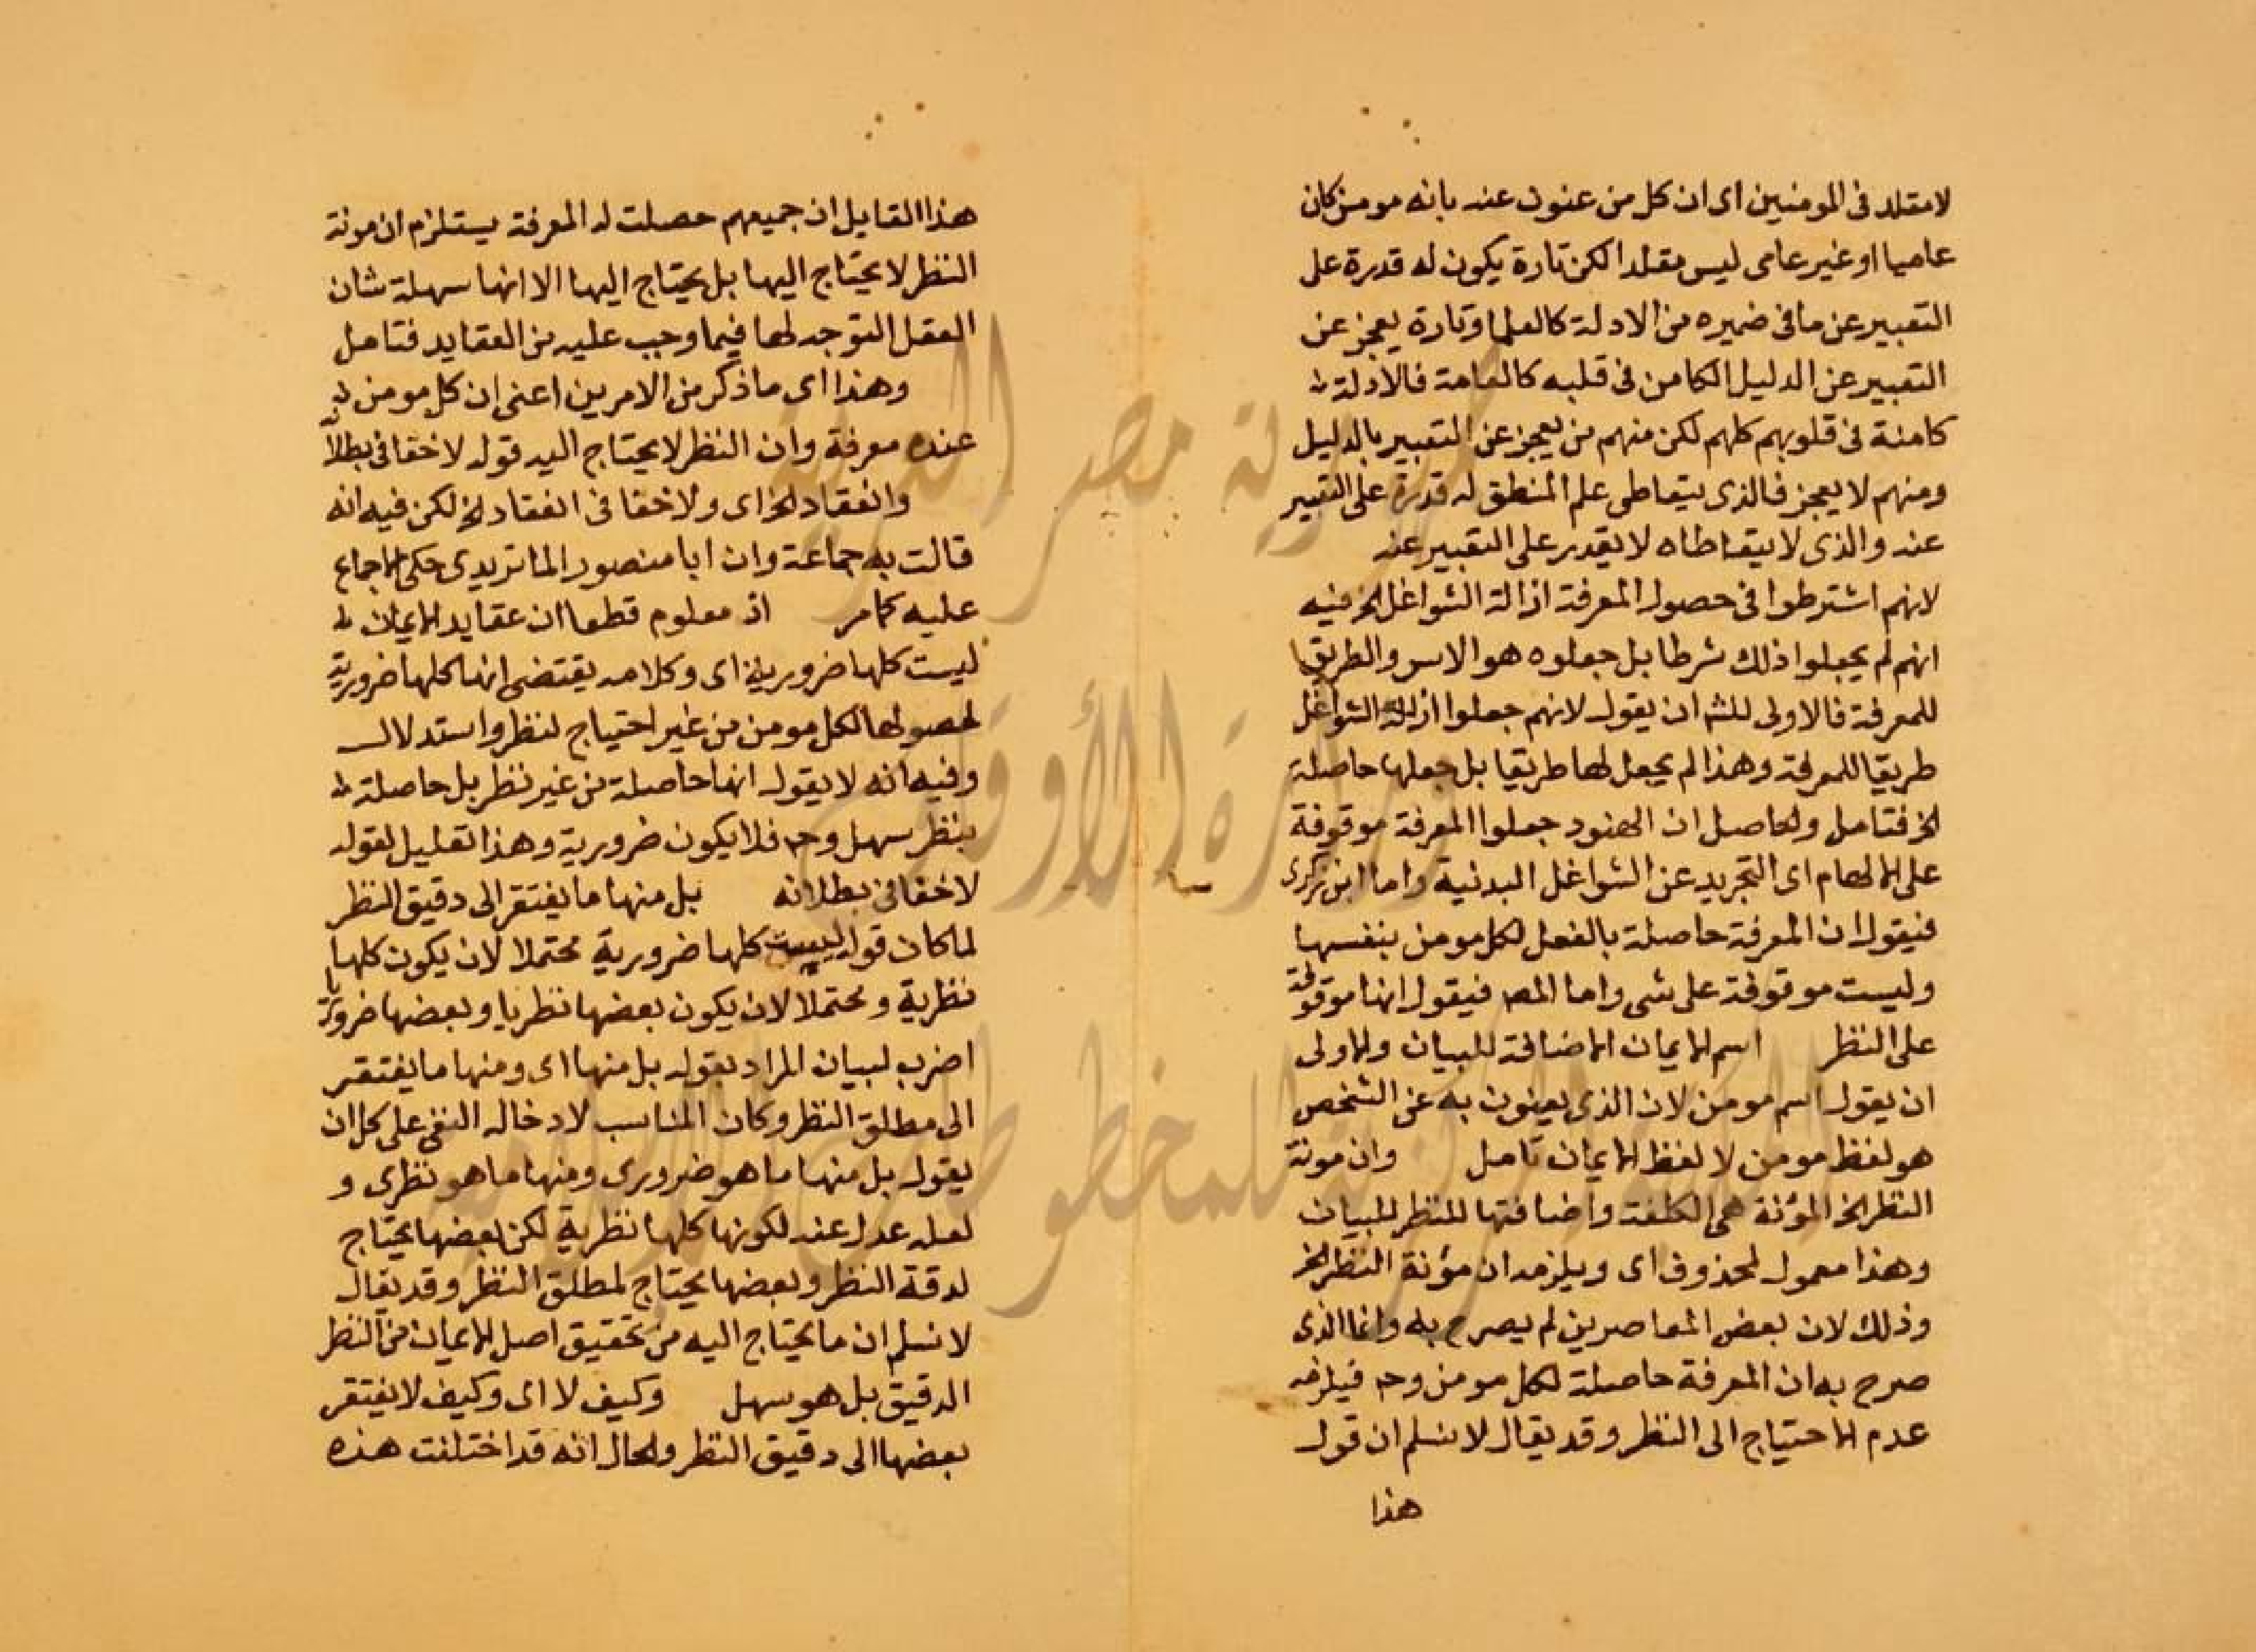 لا مقلد فى المومنين اى ان كل من عنون عنه بانه مومن كان
عاميا او غير عامى ليس مقلدا لكن تارة يكون له قدرة على
التعبير عن ما فى ضميره من الادلة كالعلما وتارة يعجز عن
التعبير عن الدليل الكامن فى قلبه كالعامة فالادلة
كامنة فى قلوبهم كلهم لكن منهم من يعجز عن التعبير بالدليل
ومنهم لا يعجز فالذى يتعاطى علم المنطق له قدرة على التعبير
عنه والذى لا يتعاطاه لا يقدر على التعبير عنه
لانهم اشترطوا فى حصول المعرفة ازالة الشواغل الخ فيه
انهم لم يجعلوا ذلك شرطا بل جعلوه هو الاس والطريق
للمعرفة فالاولى للش ان يقول لانهم جعلوا ازالة الشواغل
طريقا للمعرفة وهذا لم يجعل لها طريقا بل جعلها حاصلة
الخ فتامل والحاصل ان الهنود جعلوا المعرفة موقوفة
على الالهام اى التجريد عن الشواغل البدنية واما ابن زكرى
فيقول ان المعرفة حاصلة بالفعل لكل مومن بنفسها
وليست موقوفة على شى واما المص فيقول انها موقوفة
على النظر اسم الايمان الاضافة للبيان والاولى
ان يقول اسم مومن لان الذى يعنون به عن الشخص
هو لفظ مومن لا لفظ الايمان تامل وان مونة
النظر الخ المؤنة هى الكلفة واضافتها للنظر للبيان
وهذا معمول لمحذوف اى ويلزمه ان مؤنة النظر الخ
وذلك لان بعض المعاصرين لم يصرح به وانما الذى
صرح به ان المعرفة حاصلة لكل مومن وح فيلزمه
عدم الاحتياج الى النظر وقد يقال لا نسلم ان قول
هذا
هذا القايل ان جميعهم حصلت له المعرفة يستلزم ان مونة
النظر لا يحتاج اليها بل يحتاج اليها الا انها سهلة شان
العقل التوجه لها فيما وجب عليه من العقايد فتامل
وهذا اى ما ذكر من الامرين اعنى ان كل مومن
عنده معرفة وان النظر لا يحتاج اليه قوله لا خفا فى بطلا
وانعقاد الخ اى ولا خفا فى انعقاد الخ لكن فيه انه
قالت به جماعة وان ابا منصور الماتريدى حكى الاجماع
عليه كما مر اذ معلوم قطعا ان عقايد الايمان
ليست كلها ضرورية اى وكلامه يقتضى انها كلها ضرورية
لحصولها لكل مومن من غير احتياج لنظر واستدلال
وفيه انه لا يقول انها حاصلة من غير نظر بل حاصلة
بنظر سهل وح فلا يكون ضرورية وهذا تعليل لقوله
لا خفا فى بطلانه بل منها ما يفتقر الى دقيق النظر
لما كان قوله ليست كلها ضرورية محتملا لان يكون كلها
نظرية ومحتملا لان يكون بعضها نظريا وبعضها ضروريا
اضرب لبيان المراد بقوله بل منها اى ومنها ما يفتقر
الى مطلق النظر وكان المناسب لادخاله النفى على كل ان
يقول بل منها ما هو ضرورى ومنها ما هو نظرى و
لعله عدل عنه لكونها كلها نظرية لكن بعضها يحتاج
لدقة النظر وبعضها يحتاج لمطلق النظر وقد يقال
لا نسلم ان ما يحتاج اليه من تحقيق اصل الايمان من النظر
الدقيق بل هو سهل وكيف لا اى وكيف لا يفتقر
بعضها الى دقيق النظر والحال انه قد اختلفت هذه
جمهورية مصر العربية
وزارة الأوقاف
المكتبة المركزية للمخطوطات الإسلامية